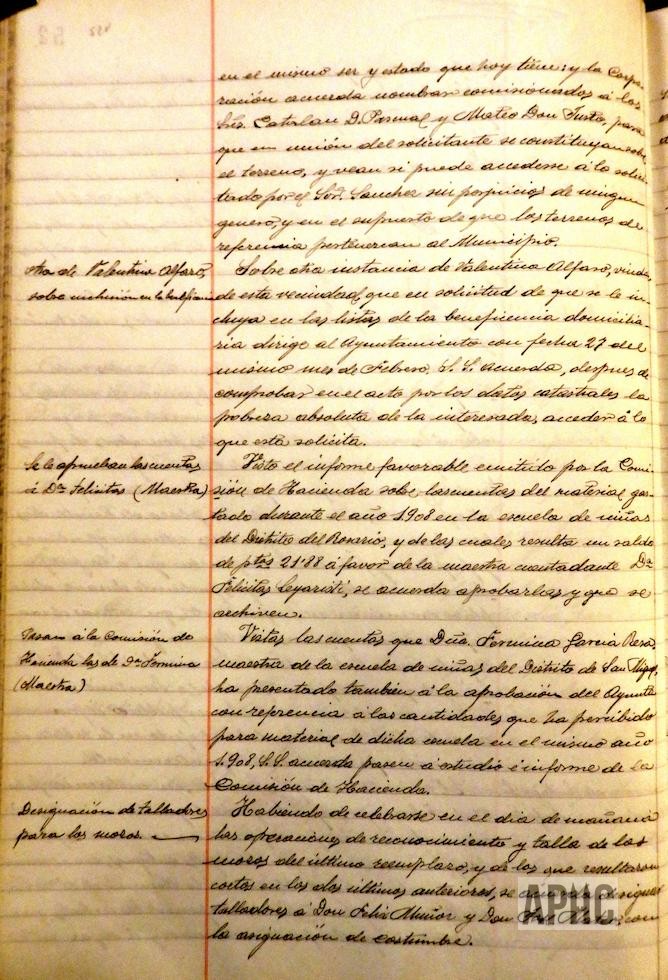 en el mismo ser y estado que hoy tiene; y la Corpo-
ración acuerda nombrar comisionados á los
Sres. Catalan D. Pascual y Mateo Don Justo, para
que en unión del solicitante se constituyan sobre
el terreno, y vean si puede accederse á lo solici-
tado por el Sor. Sanchez sin perjuicios de ningun
genero, y en el supuesto de que los terrenos de
referencia pertenezcan al Municipio.
Otra de Valentina Alfaro,
sobre inclusión en la beneficencia
Sobre otra instancia de Valentina Alfaro, viuda,
de esta vecindad, que en solicitud de que se le in-
cluya en las listas de la beneficencia domicilia-
ria dirige al Ayuntamiento con fecha 27 del
mismo mes de Febrero, S. S. acuerda, despues de
comprobar en el acto por los datos catastrales la
pobreza absoluta de la interesada, acceder á lo
que esta solicita.
Se le aprueban las cuentas
á Dª Felicitas (Maestra)
Visto el informe favorable emitido por la Comi-
sión de Hacienda sobre las cuentas del material gas-
tado durante el año 1.908 en la escuela de niñas
del Distrito del Rosario, y de las cuales resulta un saldo
de ptas 21'88 á favor de la maestra cuentadante Dª
Felicitas, se acuerda aprobarlas y que se
archiven.
Pasan á la Comisión de
Hacienda las de Dª Fermina
(Maestra)
Vistas las cuentas que Dña. Fermina Garcia
maestra de la escuela de niñas del Distrito de San Migl,
ha presentado tambien á la aprobación del Ayuntº
con referencia á las cantidades que ha percibido
para material de dicha escuela en el mismo año
1.908, S. S. acuerda pasen á estudio é informe de la
Comisión de Hacienda.
Designación de talladores
para los mozos.
Habiendo de celebrarse en el dia de mañana
las operaciones de reconocimiento y talla de los
mozos del último reemplazo, y de los que resultaron
cortos en los dos últimos anteriores, se acuerda designar
talladores á Don Felix Muñoz y Don con
la asignación de costumbre.
APHC